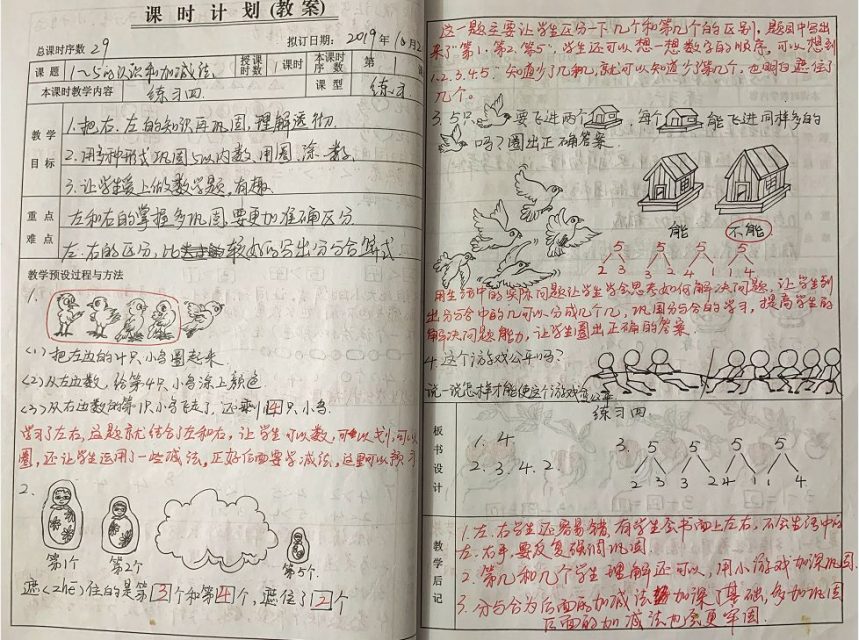 课时计划(教案)
总课时序数 29 拟订日期：2019年10月2
课题 1~5的认识和加减法 授课时数 1课时 本课时序数 第1
本课时教学内容 练习四 课型 练习
教学目标
1.把右、左的知识再巩固，理解透彻.
2.用多种形式巩固5以内数，用圈、涂、数，
3.让学生爱上做数学题，有趣.
重点难点
左和右的掌握多巩固，要更加准确区分
左、右的区分，比较好的写出分与合算式
教学预设过程与方法
1.
(1)把左边的4只小鸟圈起来.
(2)从左边数，给第4只小鸟涂上颜色
(3)从右边数的第1只小鸟飞走了，还剩4只小鸟.
学习了左右，这题就结合了左和右，让学生可以数，可以划，可以
圈，还让学生运用了一些减法，正好后面要学减法，这里可以预习
2.
第1个 第2个 第5个.
遮住的是第3个和第4个，遮住了2个
这一题主要让学生区分一下几个和第几个的区别，题目中写出
来了"第1、第2、第5"，学生还可以想一想数字的顺序，可以想到
1.2.3.4.5，知道少了几和几，就可以知道少了第几个，也明白遮住了
几个。
3. 5只 要飞进两个 ，每个 能飞进同样多的
吗？圈出正确答案.
能 不能
5 5 5 5
2 3 3 2 4 1 1 4
用生活中的实际问题让学生学会思考如何解决问题，让学生列
出分与合中的几可以分成几个几，巩固分与合的学习，提高学生的
解决问题能力，让学生圈出正确的答案.
4.这个游戏公平吗？
说一说怎样才能使这个游戏公平
板书设计
练习四
1. 4
2. 3. 4. 2.
3. 5 5 5 5
2 3 3 2 4 1 1 4
教学后记
1.左、右学生还容易错，有学生会书面上左右，不会生活中的
左、右手，要反复强调巩固.
2.第几和几个学生理解还可以，用小游戏加深巩固.
3.分与合为后面的加减法加深了基础，多加巩固
后面的加减法力会更牢固.